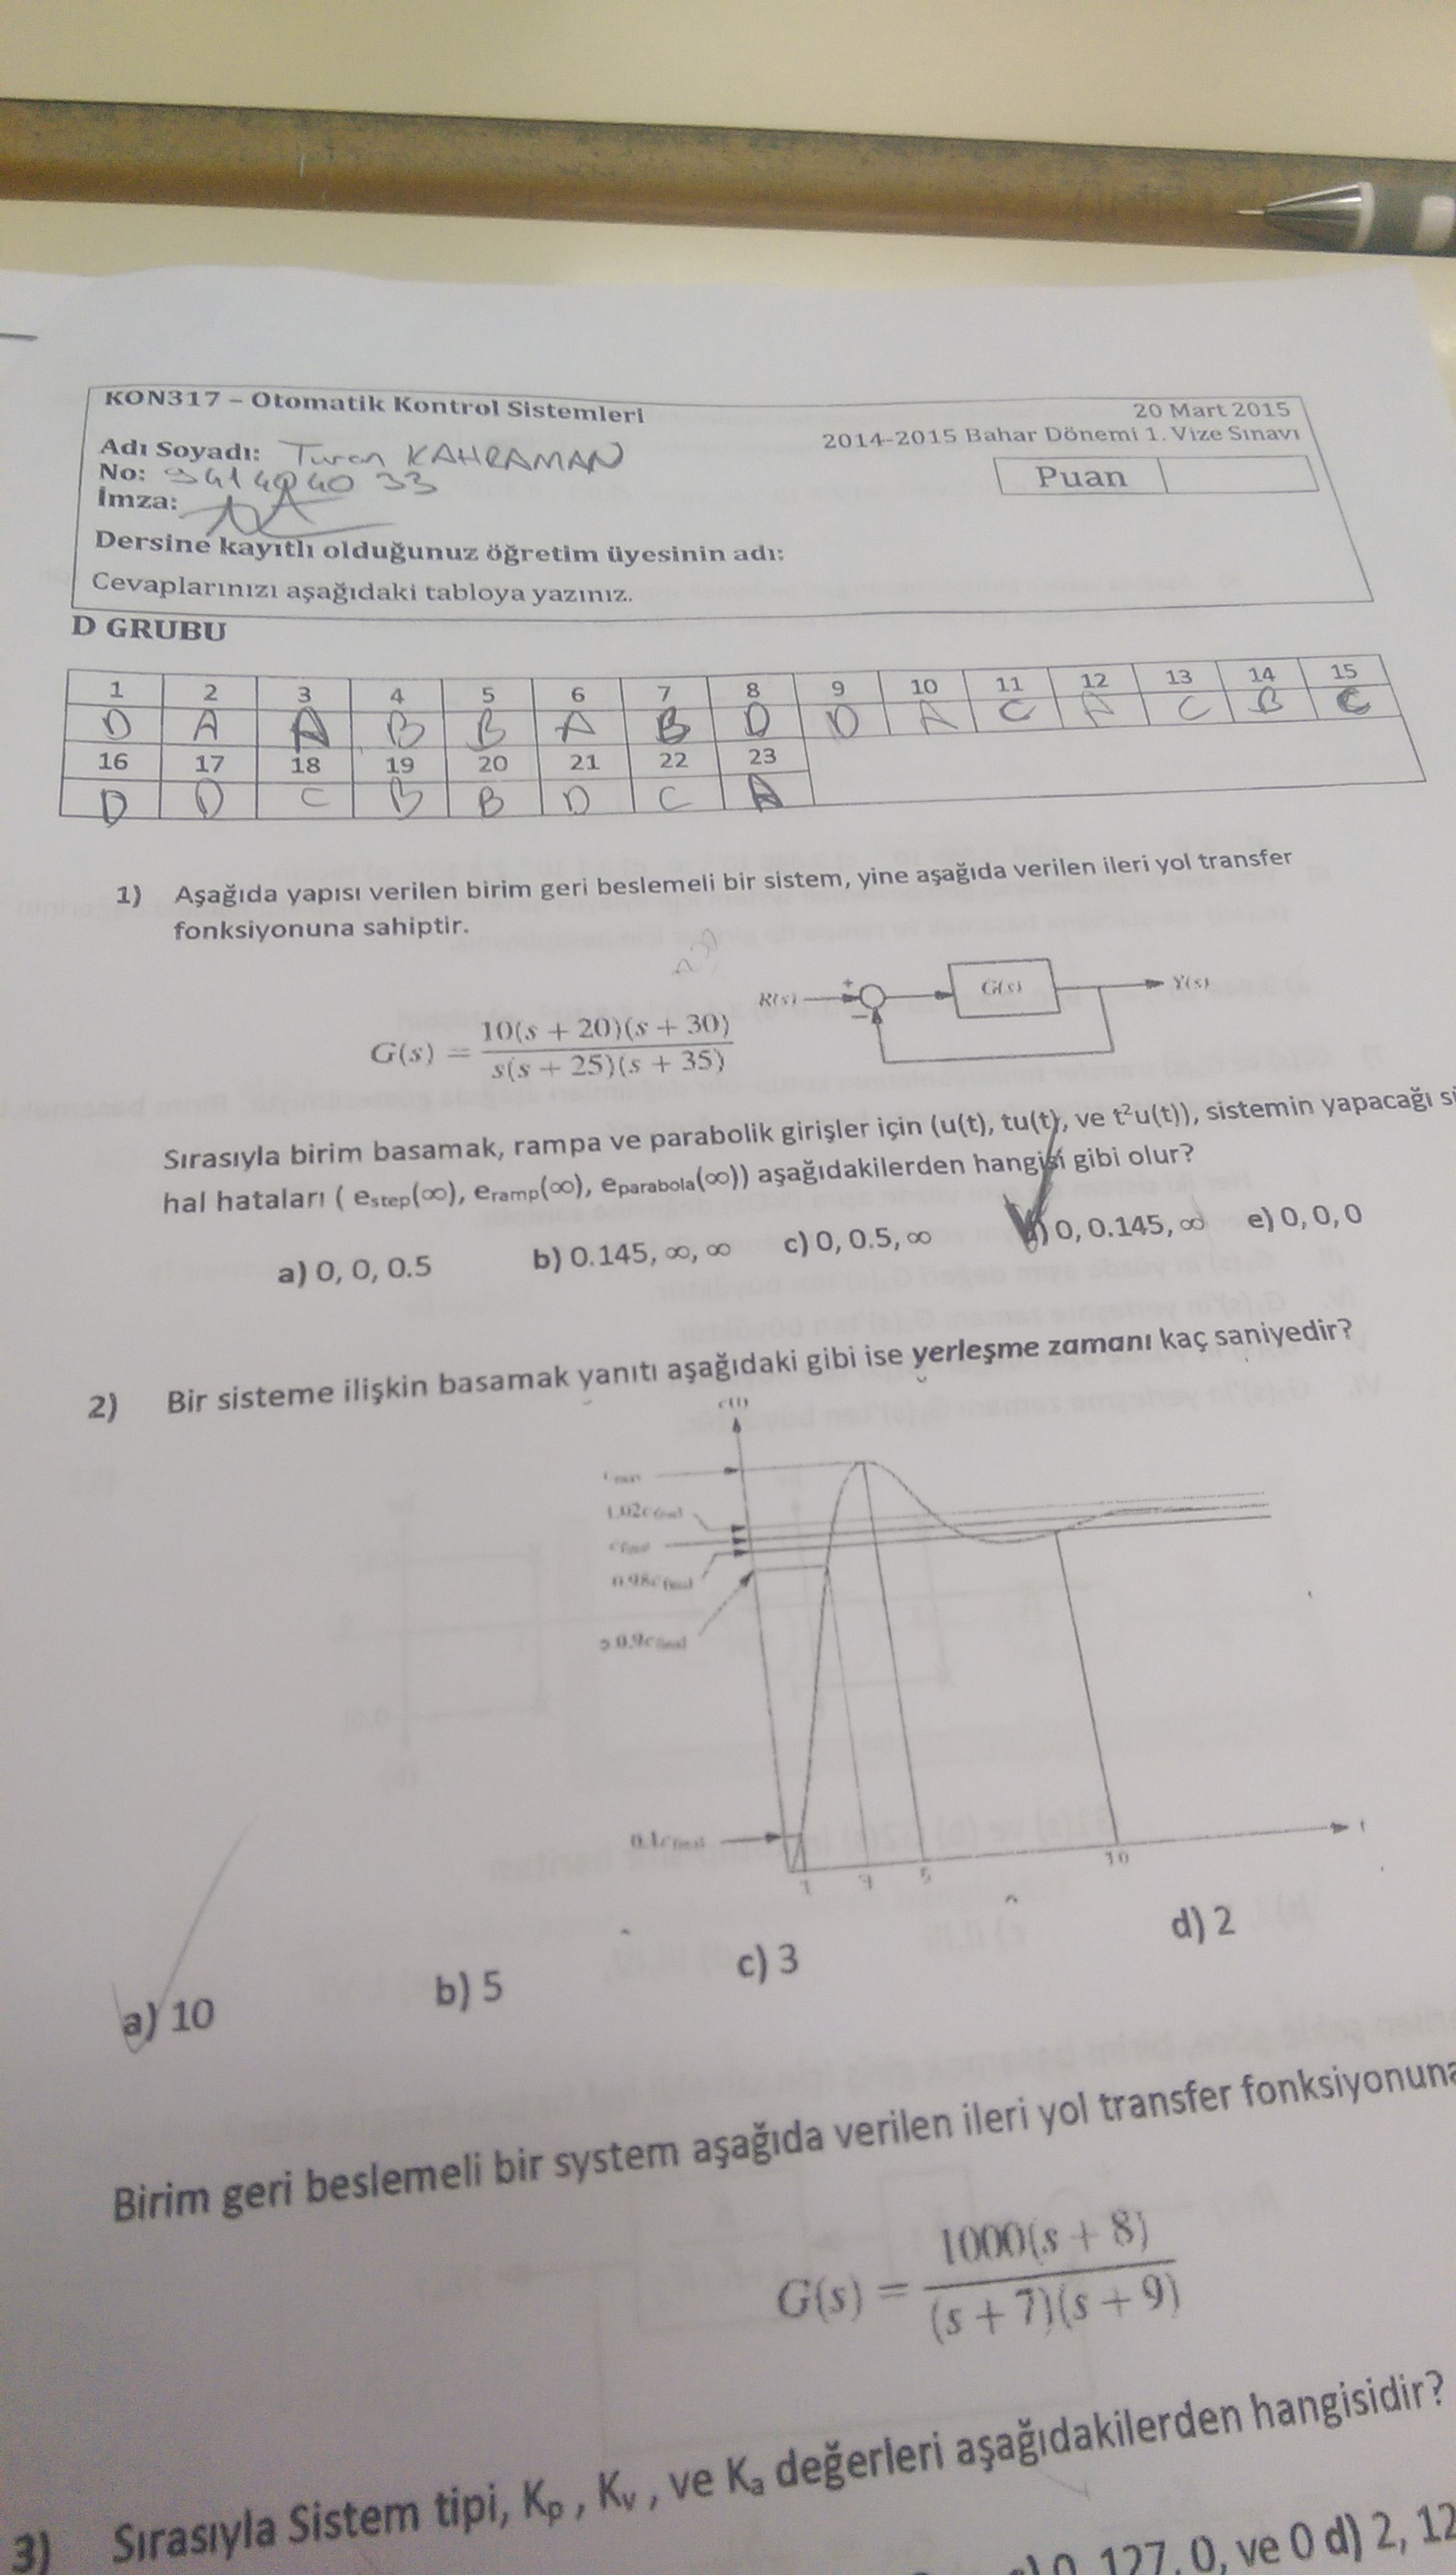 KON317 – Otomatik Kontrol Sistemleri
20 Mart 2015
2014-2015 Bahar Dönemi 1. Vize Sınavı
Adı Soyadı: Turan KAHRAMAN
No:
İmza:
Puan
Dersine kayıtlı olduğunuz öğretim üyesinin adı:
Cevaplarınızı aşağıdaki tabloya yazınız.
D GRUBU
1 2 3 4 5 6 7 8 9 10 11 12 13 14 15
D A A B B A B D D A C A C B C
16 17 18 19 20 21 22 23
D D C B B D C A
1) Aşağıda yapısı verilen birim geri beslemeli bir sistem, yine aşağıda verilen ileri yol transfer
fonksiyonuna sahiptir.
G(s) = 10(s + 20)(s + 30) / s(s + 25)(s + 35)
R(s) + − G(s) Y(s)
Sırasıyla birim basamak, rampa ve parabolik girişler için (u(t), tu(t), ve t²u(t)), sistemin yapacağı
hal hataları ( estep(∞), eramp(∞), eparabola(∞)) aşağıdakilerden hangisi gibi olur?
a) 0, 0, 0.5 b) 0.145, ∞, ∞ c) 0, 0.5, ∞ d) 0, 0.145, ∞ e) 0, 0, 0
2) Bir sisteme ilişkin basamak yanıtı aşağıdaki gibi ise yerleşme zamanı kaç saniyedir?
c(t)
cmax
1.02cfinal
cfinal
0.98cfinal
0.9cfinal
0.1cfinal
1 5 10 t
a) 10 b) 5 c) 3 d) 2
Birim geri beslemeli bir system aşağıda verilen ileri yol transfer fonksiyonuna
G(s) = 1000(s + 8) / (s + 7)(s + 9)
3) Sırasıyla Sistem tipi, Kp , Kv , ve Ka değerleri aşağıdakilerden hangisidir?
0, 127, 0, ve 0 d) 2, 12